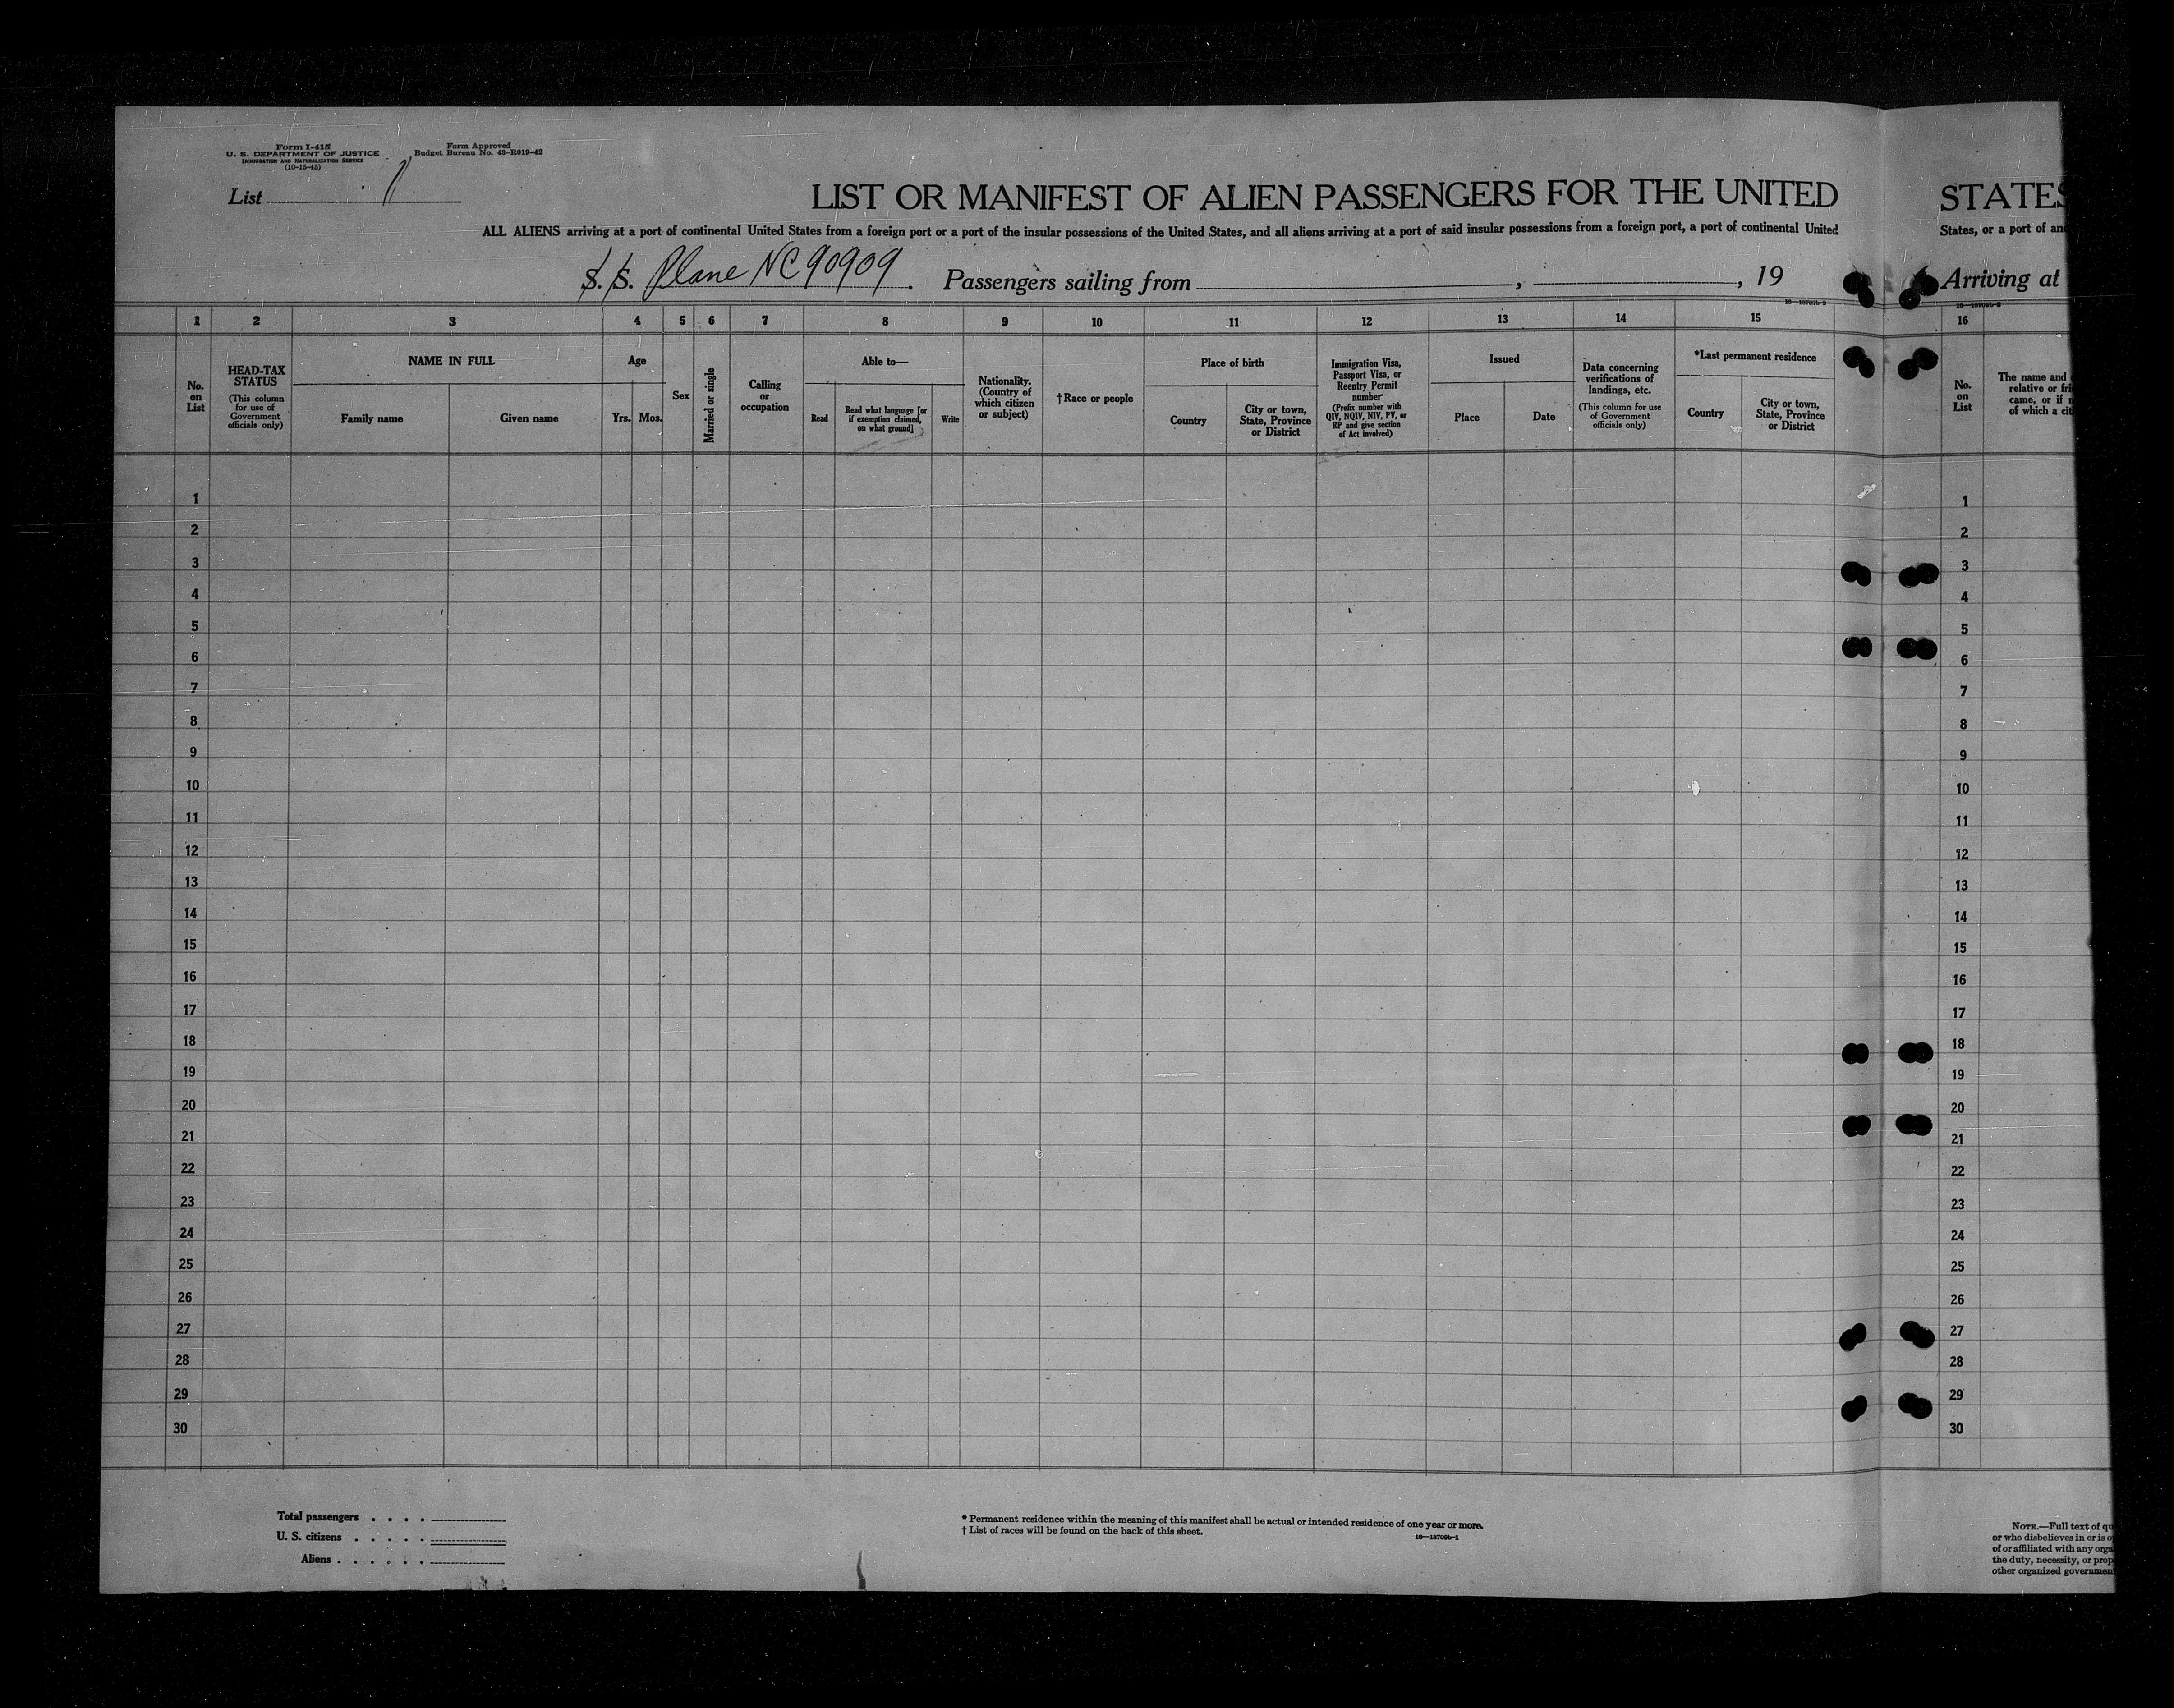 Form I-415
U. S. DEPARTMENT OF JUSTICE
IMMIGRATION AND NATURALIZATION SERVICE
(10-15-45)
Form Approved
Budget Bureau No. 43-R019-42
List
LIST OR MANIFEST OF ALIEN PASSENGERS FOR THE UNITED STATES
ALL ALIENS arriving at a port of continental United States from a foreign port or a port of the insular possessions of the United States, and all aliens arriving at a port of said insular possessions from a foreign port, a port of continental United States, or a port of
S. S. Plane NC90909. Passengers sailing from , , 19 Arriving at
16—18709b-2
1 2 3 4 5 6 7 8 9 10 11 12 13 14 15 16
No. on List
HEAD-TAX STATUS
(This column for use of Government officials only)
NAME IN FULL
Family name
Given name
Age
Yrs.
Mos.
Sex
Married or single
Calling or occupation
Able to—
Read
Read what language [or if exemption claimed, on what ground]
Write
Nationality. (Country of which citizen or subject)
† Race or people
Place of birth
Country
City or town, State, Province or District
Immigration Visa, Passport Visa, or Reentry Permit number
(Prefix number with QIV, NQIV, NIV, PV, or RP and give section of Act involved)
Issued
Place
Date
Data concerning verifications of landings, etc.
(This column for use of Government officials only)
*Last permanent residence
Country
City or town, State, Province or District
No. on List
The name and
relative or
came, or if
of which a
1 1
2 2
3 3
4 4
5 5
6 6
7 7
8 8
9 9
10 10
11 11
12 12
13 13
14 14
15 15
16 16
17 17
18 18
19 19
20 20
21 21
22 22
23 23
24 24
25 25
26 26
27 27
28 28
29 29
30 30
Total passengers . . . .
U. S. citizens . . . . .
Aliens . . . . . .
* Permanent residence within the meaning of this manifest shall be actual or intended residence of one year or more.
† List of races will be found on the back of this sheet.
16—18709b-1
NOTE.—Full text of
or who disbelieves in or is
of or affiliated with any
the duty, necessity, or
other organized